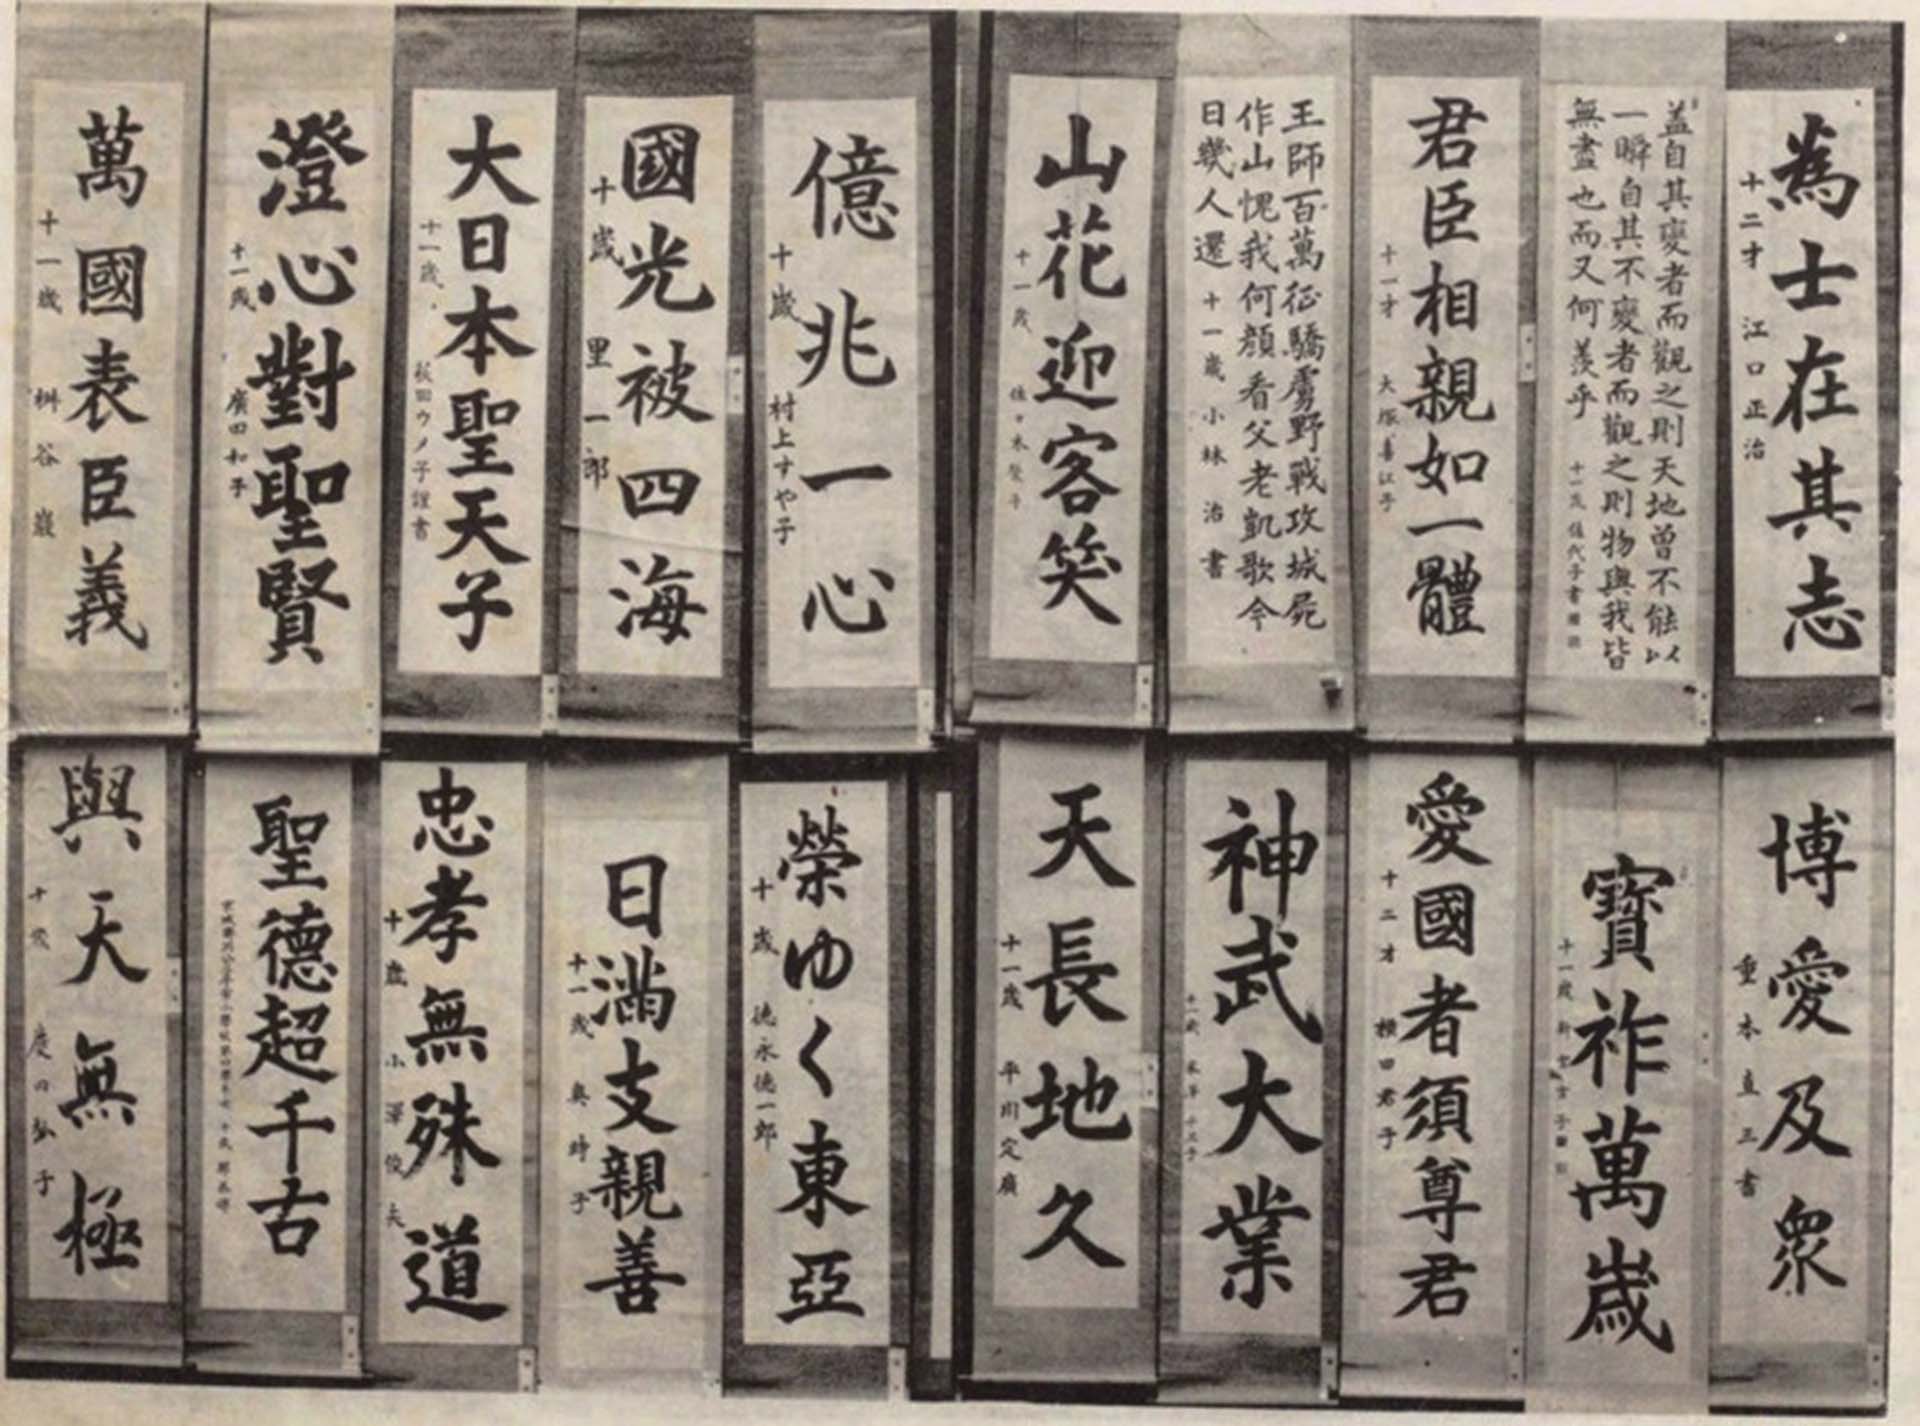 為士在其志
十二才 江口正治
蓋自其變者而觀之則天地曾不能以
一瞬自其不變者而觀之則物與我皆
無盡也而又何羨乎
君臣相親如一體
十一才 大塚喜江子
王師百萬征驕虜野戰攻城屍
作山愧我何顏看父老凱歌今
日幾人還 十一歳 小林 治書
山花迎客笑
十一歳
億兆一心
十歳 村上すや子
國光被四海
十歳 里一郎
大日本聖天子
十一歳 秋田ウメ子謹書
澄心對聖賢
十一歳 廣田和子
萬國表臣義
十一歳 桝谷巖
博愛及衆
重本直正書
寶祚萬歳
十一歳
愛國者須尊君
十二才 横田君子
神武大業
天長地久
十一歳 平川定廣
榮ゆく東亞
十歳 徳永徳一郎
日滿支親善
十一歳 奥時子
忠孝無殊道
十歳 小澤俊夫
聖德超千古
與天無極
十歳